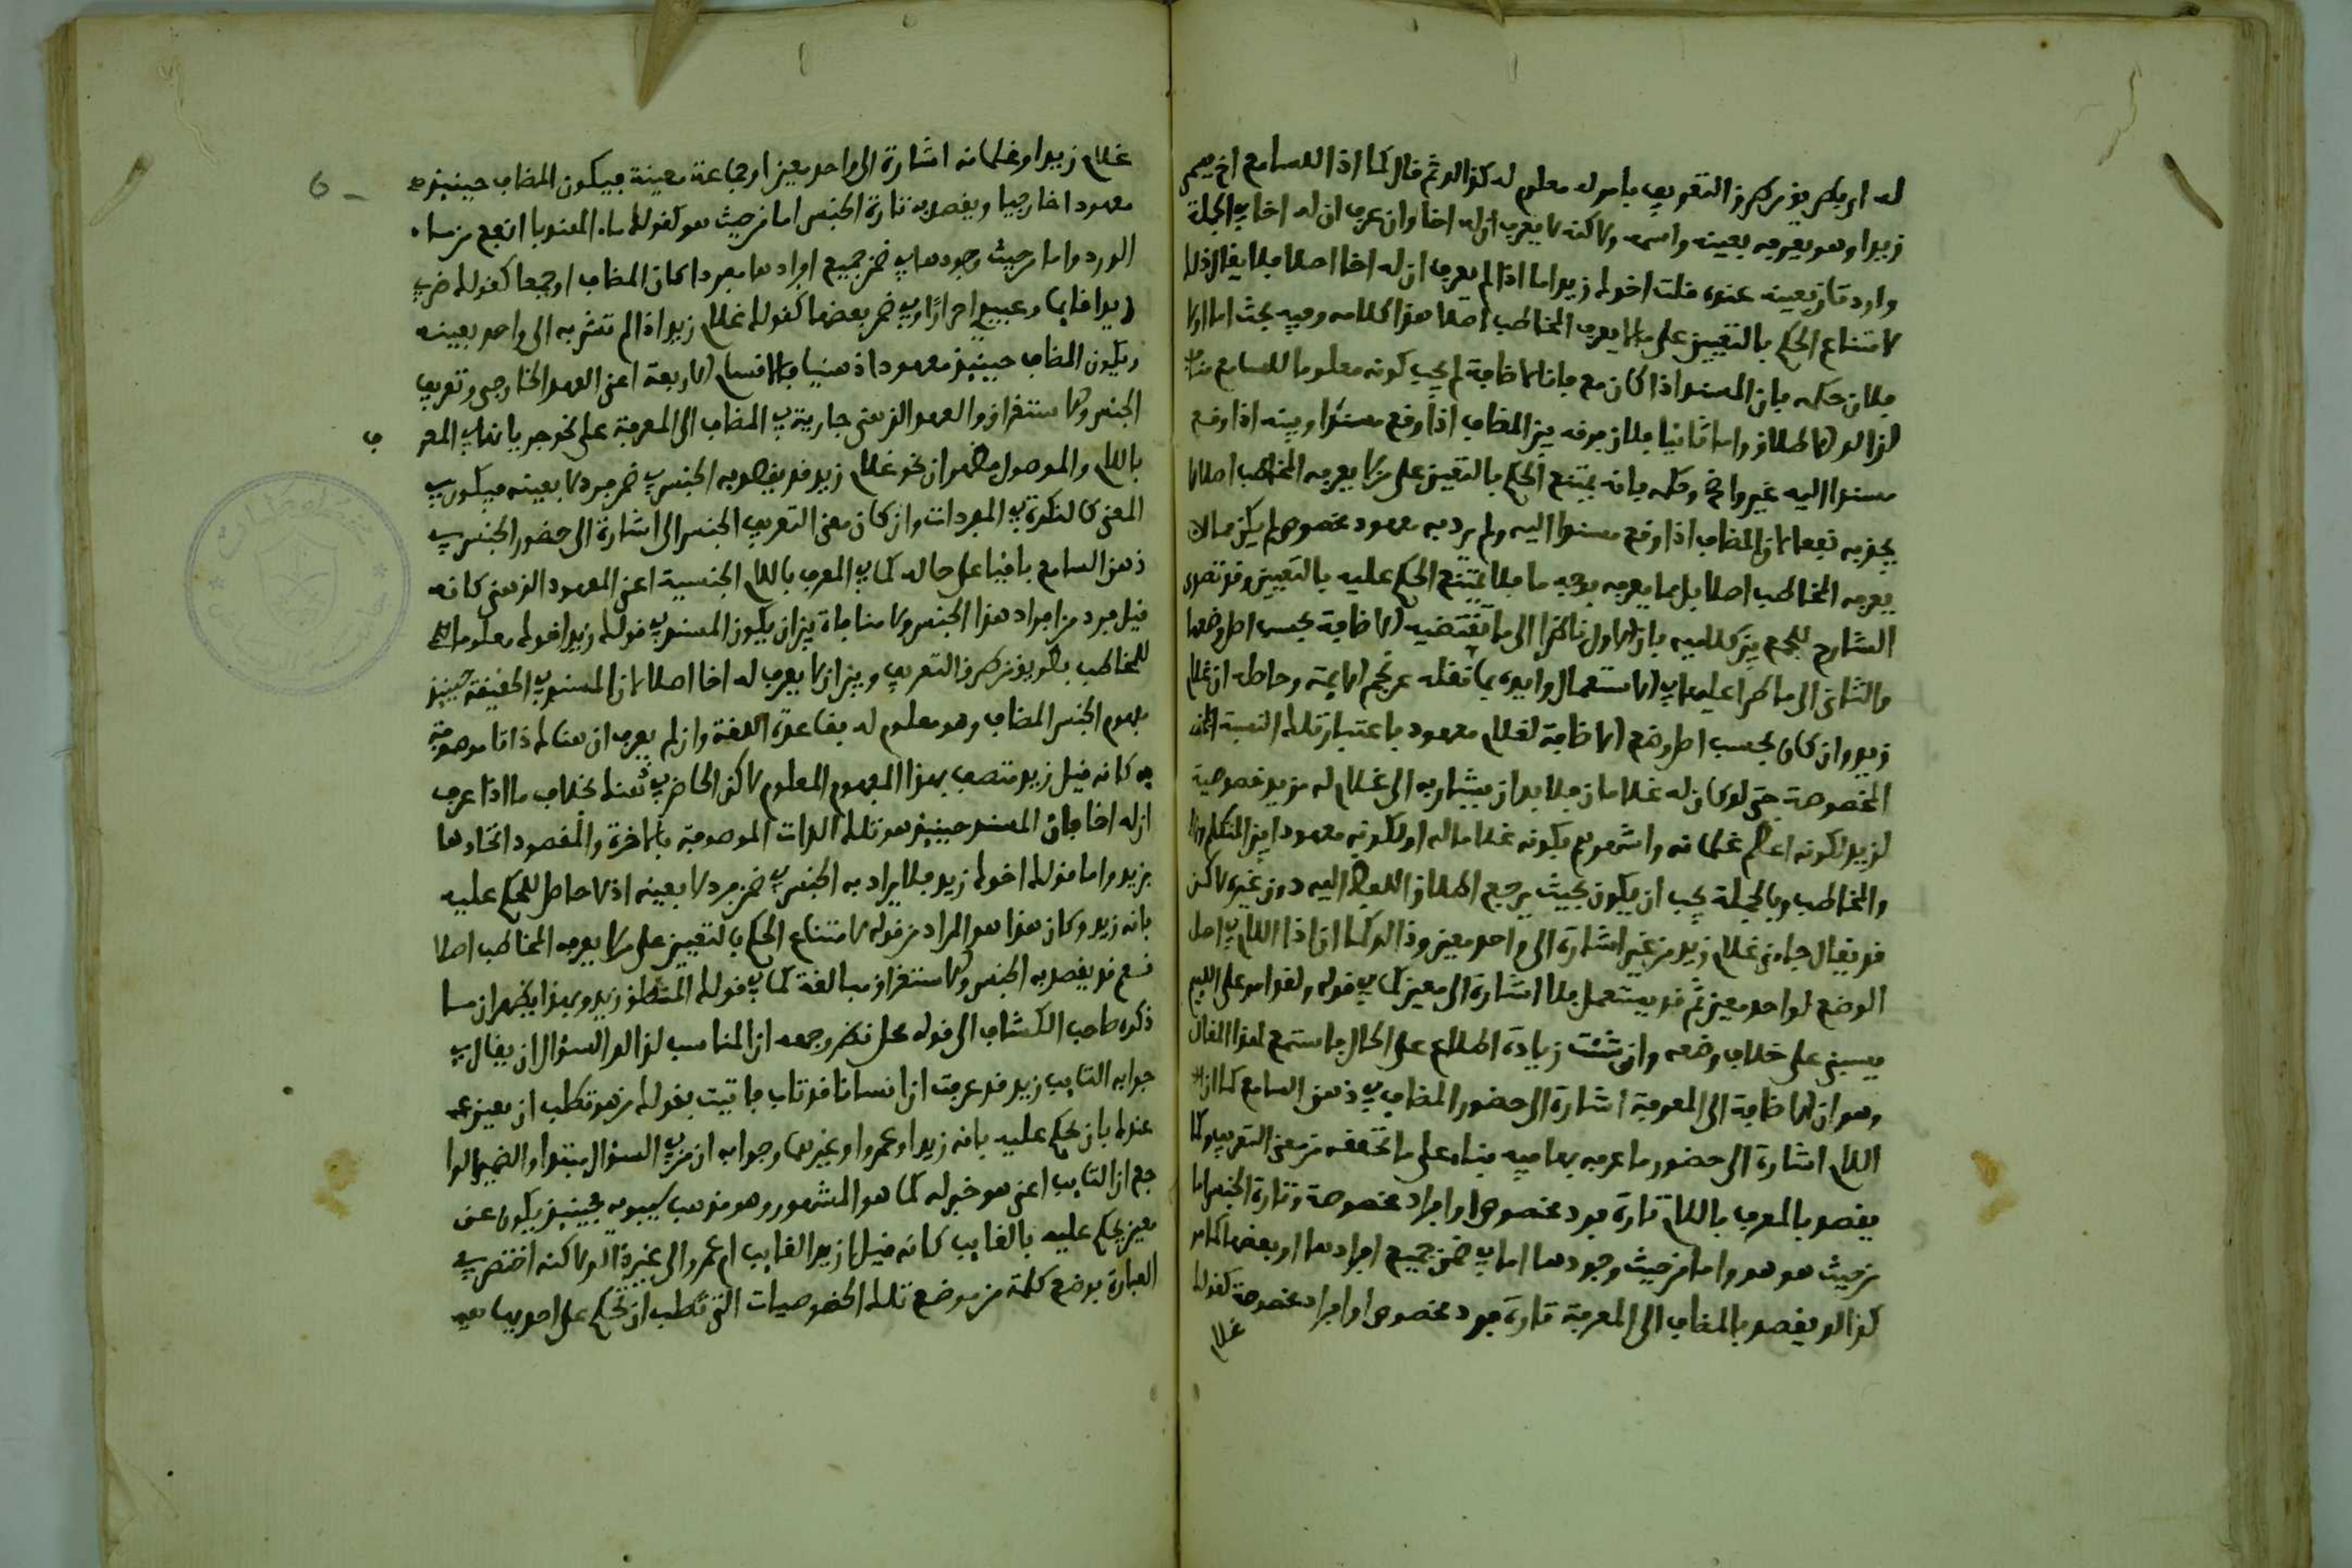 له اي بطريق من طرق التعريف بامر له معلوم له كذالك ثم قال كما اذا للسامع اخ يسمى
زيدا وهو يعرفه بعينه واسمه ولاكنه لا يعرف ان له اخا وان عرف ان له اخا في الجملة
واردت ان تعينه عنده قلت اخوك زيد اما اذا لم يعرف ان له اخا اصلا فلا يقال ذلك
لامتناع الحكم بالتعيين على ما لا يعرف المخاطب اصلا هذا كلامه وفيه بحث اما اولا
فلان حكمه بان المسند اذا كان معرفا بالاضافة لم يجب كونه معلوما للسامع
كذالك الاطلاق واما ثانيا فلان فرقه بين المضاف اذا وقع مسندا وبينه اذا وقع
مسندا اليه غير واضح وحكمه بانه يمتنع الحكم بالتعيين على من لا يعرفه المخاطب اصلا لا
يجديه نفعا لان المضاف اذا وقع مسندا اليه ولم يرد به معهود مخصوص لم يكن مما لا
يعرفه المخاطب اصلا بل مما يعرفه بوجه ما فلا يمتنع الحكم عليه بالتعيين وقد تصدى
الشارح للجمع بين كلاميه بان الاول ناظر الى ما تقتضيه الاضافة بحسب اصل وضعها
والثاني الى ما طرا عليها في الاستعمال وايده بما نقله عن نجم الايمة وحاصله ان غلام
زيد وان كان بحسب اصل وضع الاضافة لغلام معهود باعتبار تلك النسبة
المخصوصة حتى لو كان له غلامان فلا بد ان يشار به الى غلام له مزيد خصوصية
لزيد لكونه اعظم غلمانه واشهرهم بكونه غلاما له او لكونه معهودا بين المتكلم
والمخاطب وبالجملة يجب ان يكون بحيث يرجع اطلاق اللفظ اليه دون غيره لاكن
قد يقال جاءني غلام زيد من غير اشارة الى واحد معين وذالك كما ان ذا اللام في اصل
الوضع لواحد معين ثم قد يستعمل بلا اشارة الى معين كما في قوله ولقد امر على اللئيم
يسبني على خلاف وضعه وان شئت زيادة اطلاع على الحال فاستمع لهذا المقال
وهو ان الاضافة الى المعرفة اشارة الى حضور المضاف في ذهن السامع كما ان
اللام اشارة الى حضور ما عرف بها فيه بناء على ما تحققه من معنى التعريف وكما
يقصد بالمعرف باللام تارة فرد مخصوص او افراد مخصوصة وتارة الجنس اما
من حيث هو هو واما من حيث وجودها اما في ضمن جميع افرادها او بعضها
كذالك يقصد بالمضاف الى المعرفة تارة فرد مخصوص او افراد مخصوصة كقولك
غلام
6
غلام زيد او غلمانه اشارة الى واحد معين او جماعة معينة فيكون المضاف حينئذ
معهودا خارجيا ويقصد به تارة الجنس اما من حيث هو كقولك ماء الهندبا انفع من ماء
الورد واما من حيث وجودها في ضمن جميع افرادها مفردا كان المضاف او جمعا كقولك ضربي
زيدا قائما وعبيدي احرار او في ضمن بعضها كقولك غلام زيد اذا لم تشر به الى واحد بعينه
ويكون المضاف حينئذ معهودا ذهنيا فالاقسام الاربعة اعني العهد الخارجي وتعريف
الجنس والاستغراق والعهد الذهني جارية في المضاف الى المعرفة على نحو جريانها في المعر
ف
باللام والموصول فظهر ان نحو غلام زيد قد يقصد به الجنس في ضمن فرد لا بعينه فيكون في
المعنى كالنكرة في المفردات وان كان معنى التعريف الجنسي الى اشارة الى حضور الجنس في
ذهن السامع باقيا على حاله كما في المعرف باللام الجنسية اعني المعهود الذهني كانه
قيل فرد من افراد هذا الجنس ولا منافاة بين ان يكون المسند في قولك زيد اخوك معلوما
للمخاطب بطريق من طرق التعريف وبين ان لا يعرف له اخا اصلا لان المسند في الحقيقة حينئذ
مفهوم الجنس المضاف وهو معلوم له بقاعدة اللغة وان لم يعرف ان هناك ذاتا موصوفة
به كانه قيل زيد متصف بهذا المفهوم المعلوم لاكن الحاضر في ذهنك بخلاف ما اذا عرف
ان له اخا فان المسند حينئذ هو تلك الذات الموصوفة بالاخوة والمقصود اتحادها
بزيد واما قولك اخوك زيد فلا يراد به الجنس في ضمن فرد لا بعينه اذ لا حاصل للحكم عليه
بانه زيد وكان هذا هو المراد من قوله لامتناع الحكم بالتعيين على من لا يعرفه المخاطب اصلا
نعم قد يقصد به الجنس والاستغراق مبالغة كما في قولك المنطلق زيد وبهذا يظهر ان ما
ذكره صاحب الكشاف الى قوله محل نظر وجهه ان المناسب لذالك السؤال ان يقال في
جوابه التايب زيد قد عرفت ان انسانا قد تاب فاتيت بقولك من هو تطلب ان يعين
عندك بان يحكم عليه بانه زيد او عمرو او غيرهما وجوابه ان من في السؤال مبتدا والضمير
جع ان التايب اعني هو خبر له كما هو المشهور وهو مذهب سيبويه فحينئذ يكون عن
معين يحكم عليه بالتايب كانه قيل ازيد التايب ام عمرو الى غير ذالك لاكنه اختصر في
العبارة بوضع كلمة من موضع تلك الخصوصيات التي تطلب ان يحكم على احدها